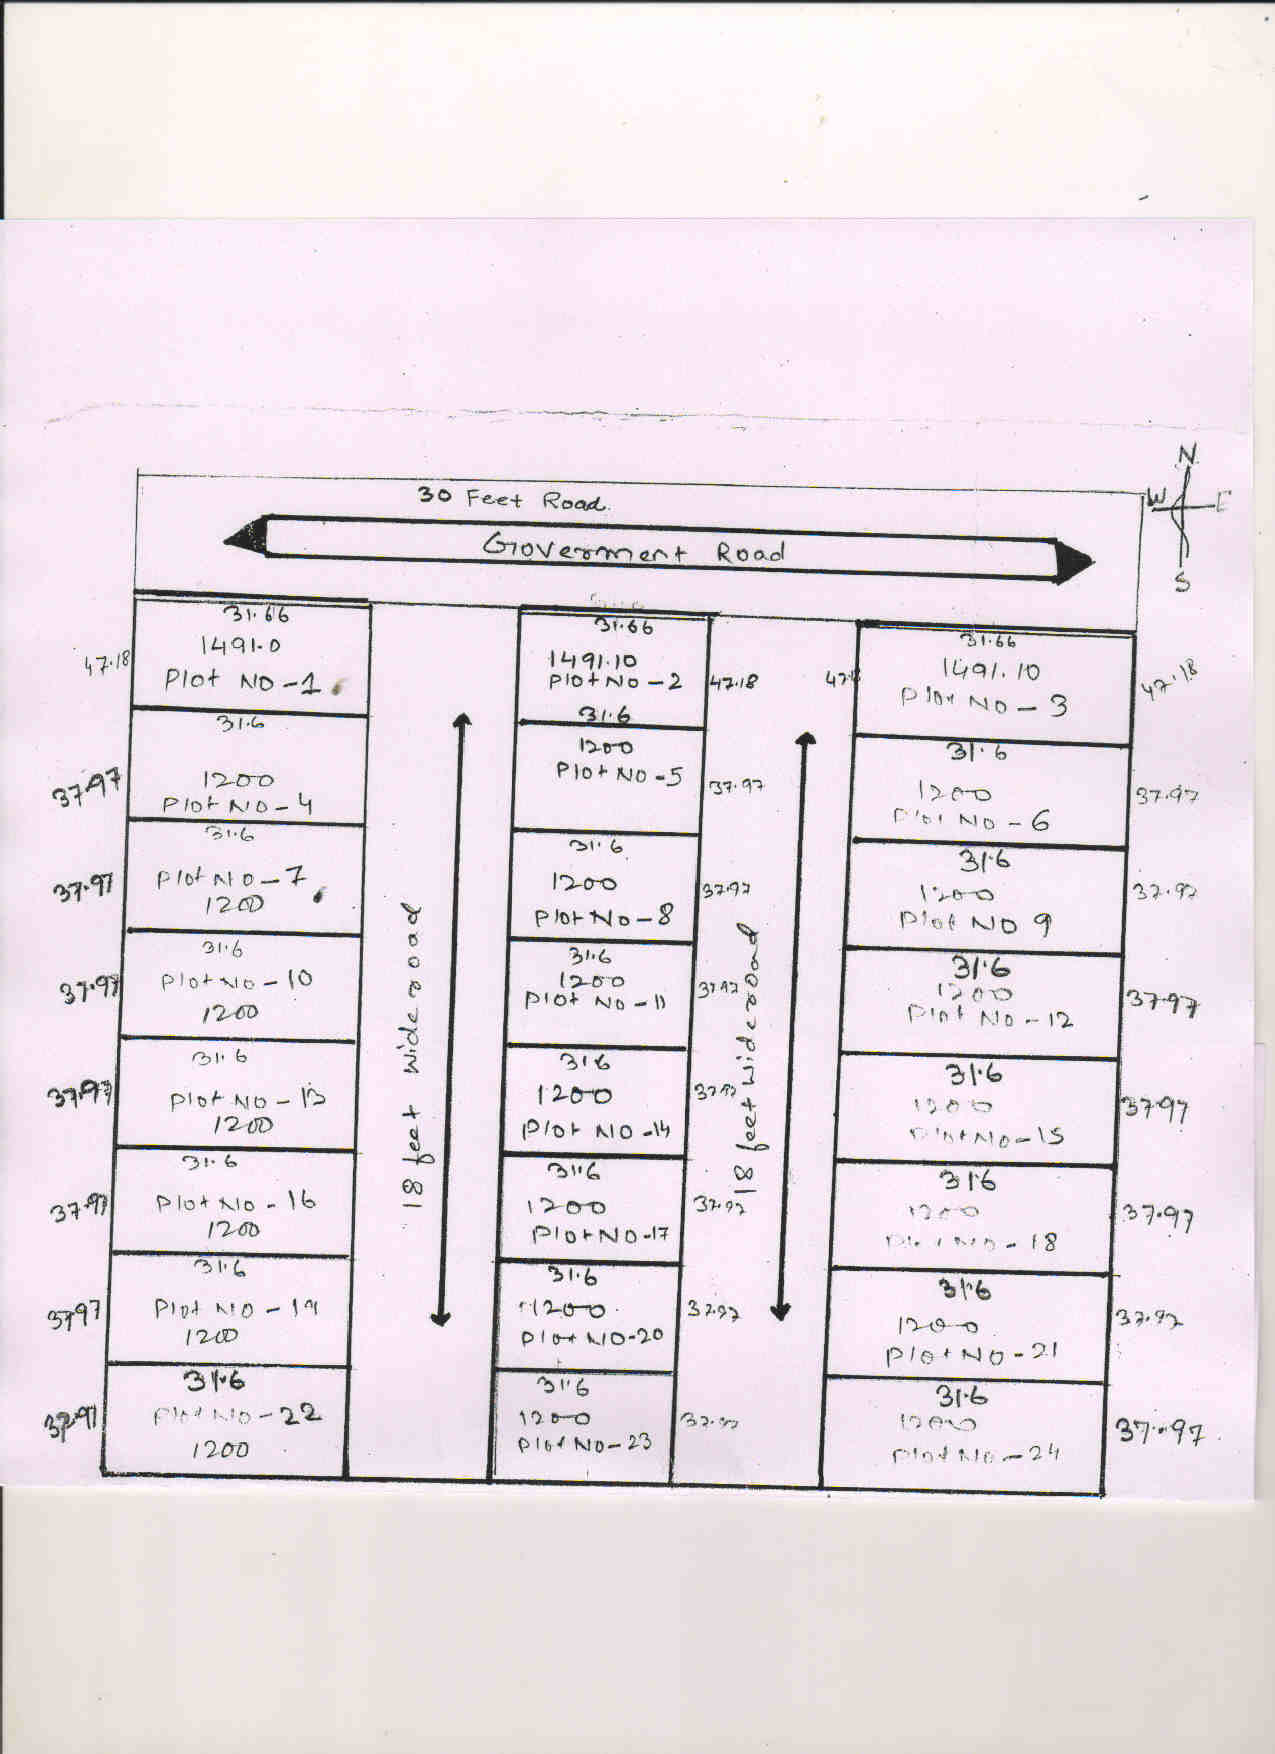 N
W E
S
30 Feet Road.
Goverment Road
31.66
1491.0
Plot NO-1
47.18
31.66
1491.10
Plot NO-2
47.18
31.66
1491.10
Plot NO-3
47.18
31.6
1200
Plot NO-4
37.97
31.6
1200
Plot NO-5
37.97
31.6
1200
Plot NO-6
37.97
31.6
Plot NO-7
1200
37.97
31.6
1200
Plot NO-8
37.97
31.6
1200
Plot NO 9
37.97
31.6
Plot NO-10
1200
37.97
31.6
1200
Plot NO-11
37.97
31.6
1200
Plot NO-12
37.97
31.6
Plot NO-13
1200
37.97
31.6
1200
Plot NO-14
37.97
31.6
1200
Plot NO-15
37.97
31.6
Plot NO-16
1200
37.97
31.6
1200
Plot NO-17
37.97
31.6
1200
Plot NO-18
37.97
31.6
Plot NO-19
1200
37.97
31.6
1200
Plot NO-20
37.97
31.6
1200
Plot NO-21
37.97
31.6
Plot NO-22
1200
37.97
31.6
1200
Plot NO-23
31.6
1200
Plot NO-24
37.97
18 feet wide road
18 feet wide road